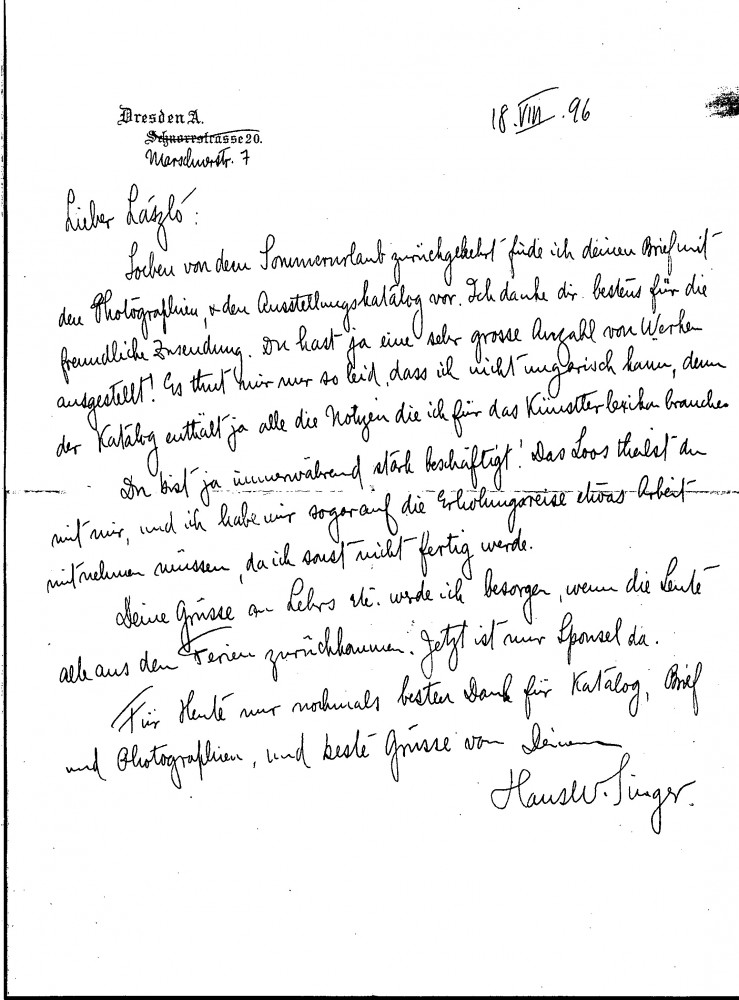 Dresden A.
Schnorrstrasse 20.
Marschnerstr. 7
18.VIII.96
Lieber László:
Soeben von dem Sommerurlaub zurückgekehrt finde ich deinen Brief mit
den Photographien, & den Ausstellungskatalog vor. Ich danke dir bestens für die
freundliche Zusendung. Du hast ja eine sehr grosse Anzahl von Werken
ausgestellt! Es thut mir nur so leid, dass ich nicht ungarisch kann, denn
der Katalog enthält ja alle die Notizen die ich für das Künstlerlexikon brauche.
Du bist ja immerwährend stark beschäftigt! Das Loos theilst du
mit mir, und ich habe mir sogar auf die Erholungsreise etwas Arbeit
mitnehmen müssen, da ich sonst nicht fertig werde.
Deine Grüsse an Lehrs etc. werde ich besorgen, wenn die Leute
alle aus den Ferien zurückkommen. Jetzt ist nur Sponsel da.
Für Heute nur nochmals besten Dank für Katalog, Brief
und Photographien, und beste Grüsse von Deinem
Hans W. Singer.